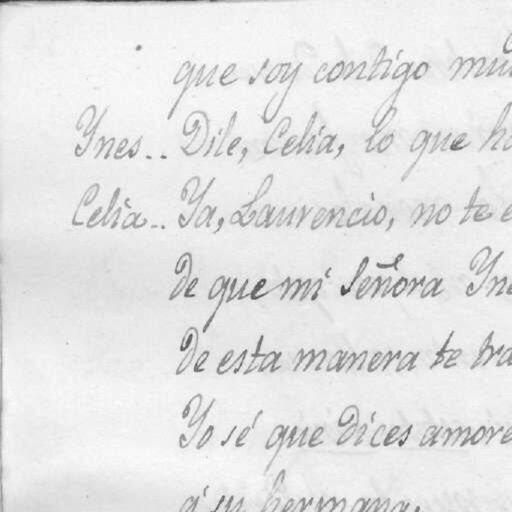 que soy contigo
Ynes.. Dile, Celia, lo que
Celia.. Ya, Laurencio, no te
de que mi señora
de esta manera te
Yo sé que dices
á su hermana.